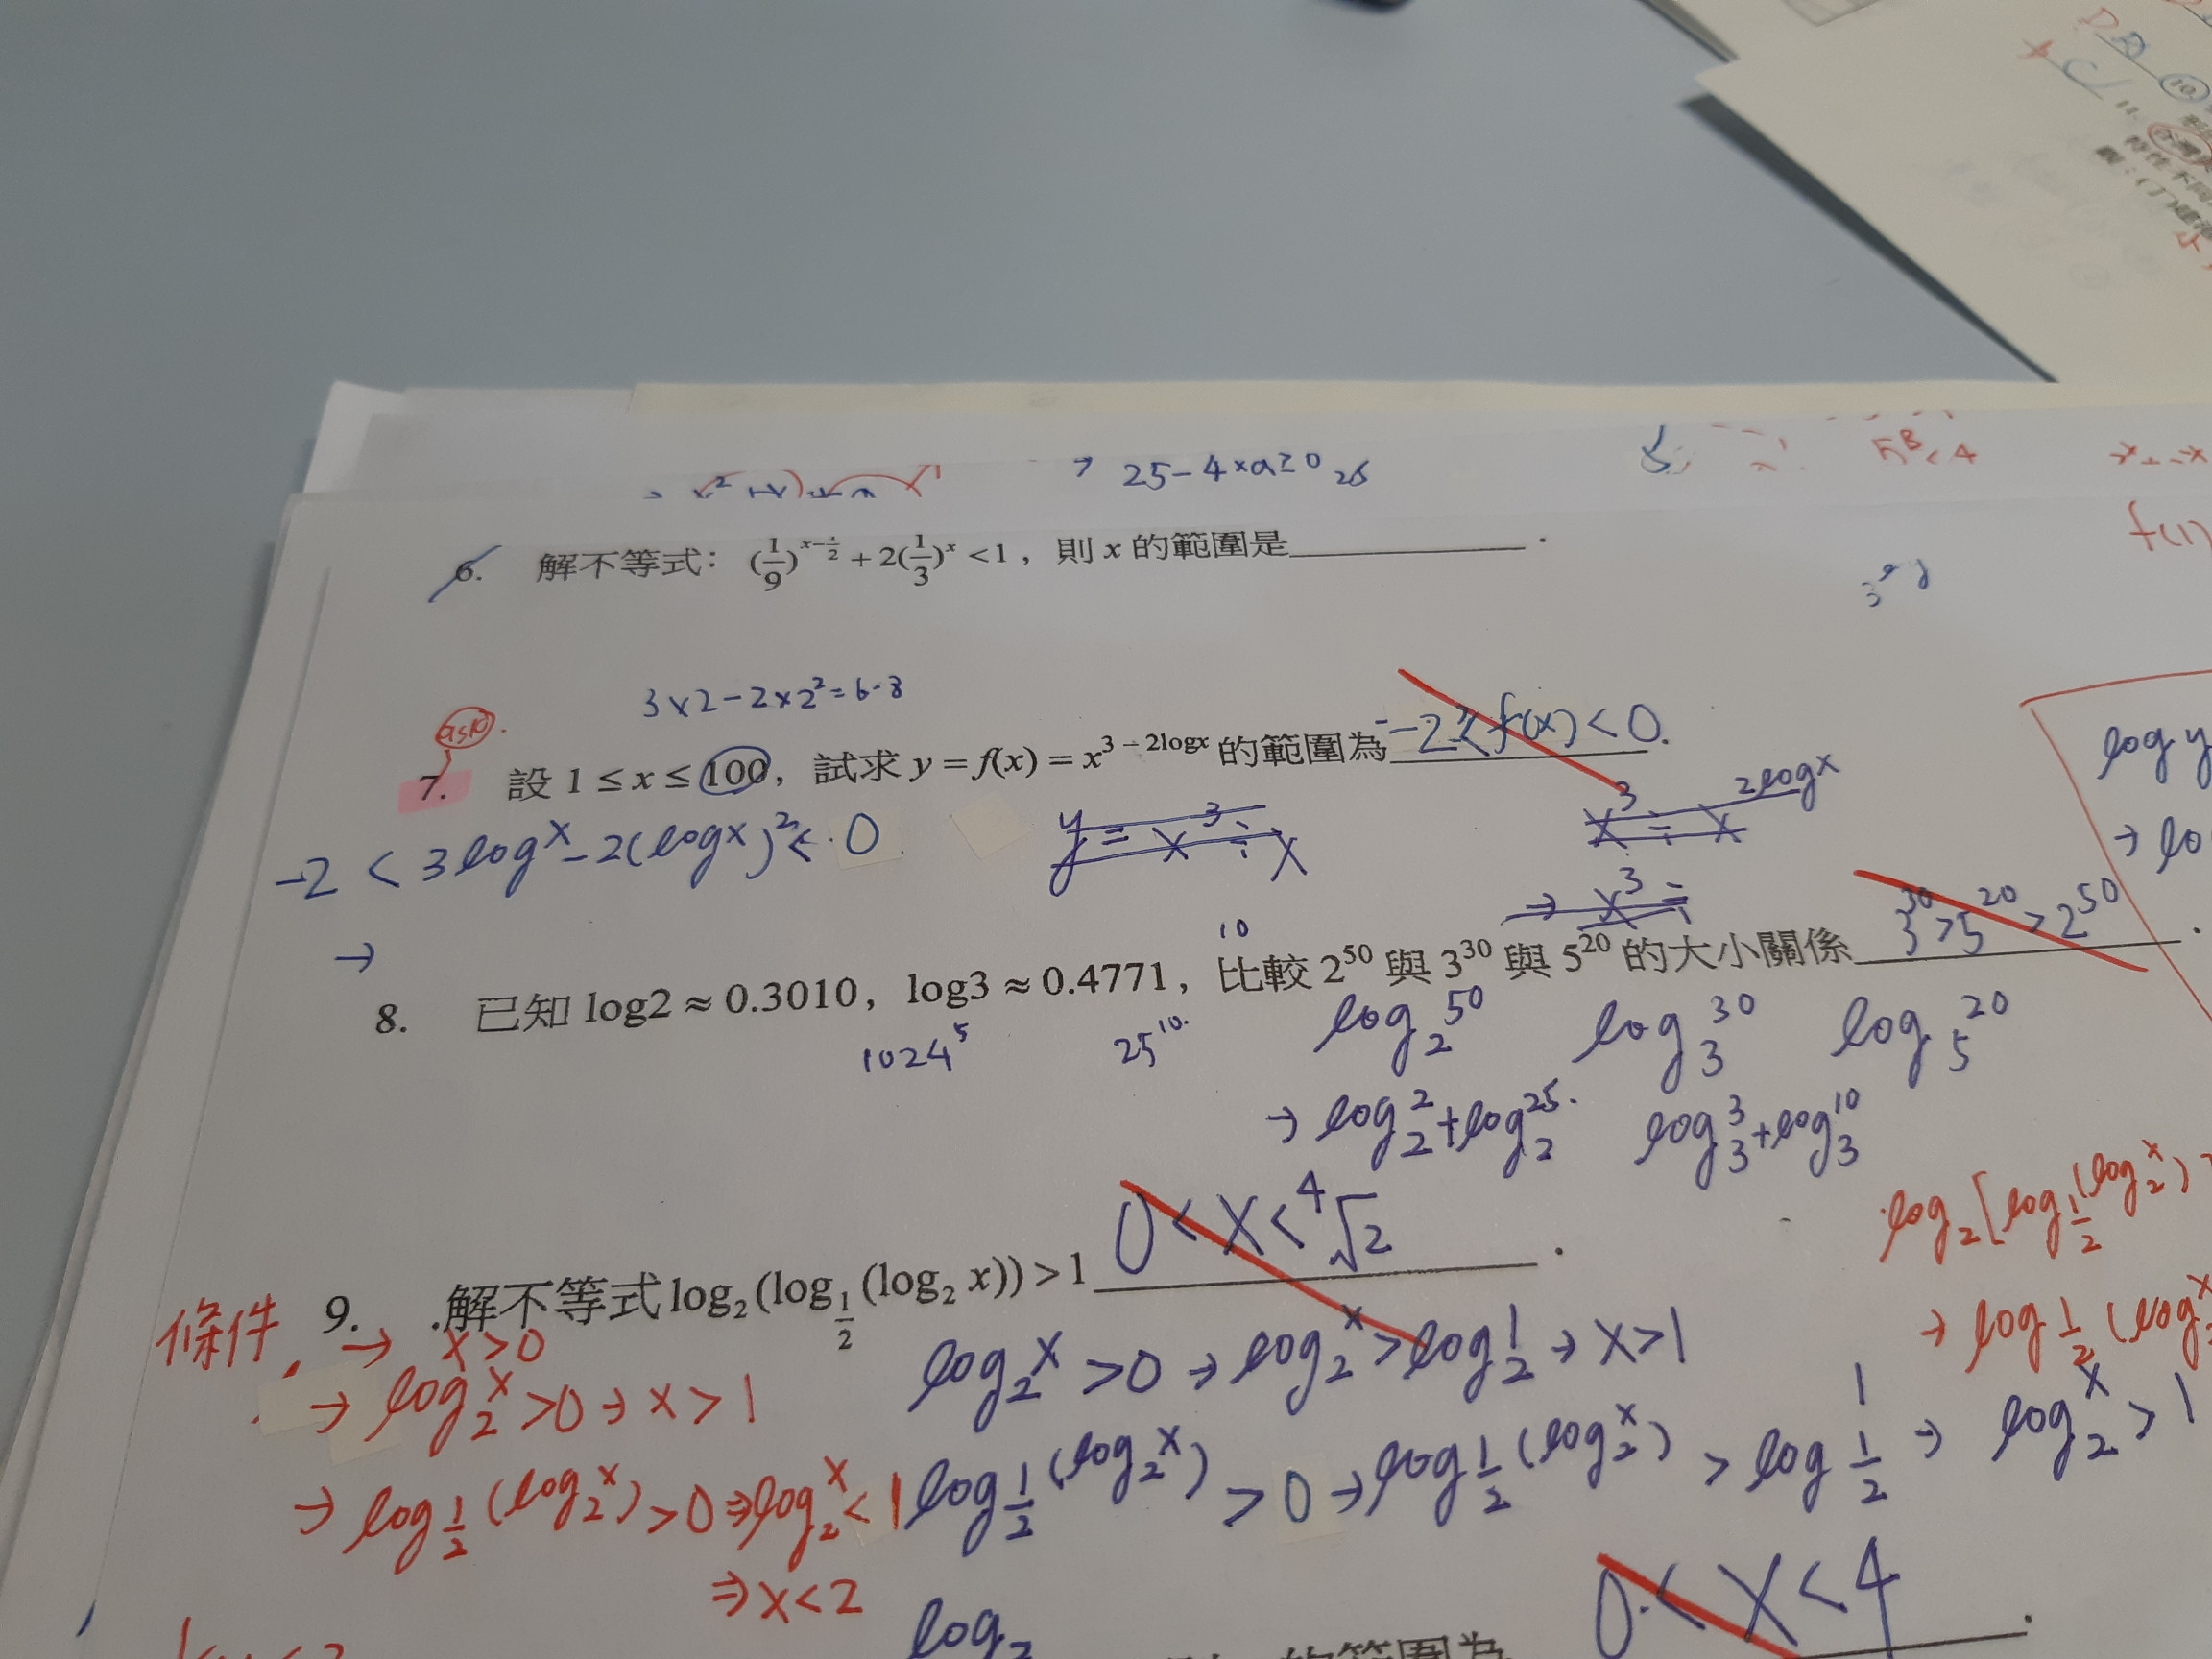 25-4×a≥0
6. 解不等式：(1/9)^{x-1/2}+2(1/3)^x<1，則 x 的範圍是________．
3×2-2×2²=6-8
ask
7. 設 1≤x≤100，試求 y=f(x)=x^{3-2logx} 的範圍為 -2<f(x)<0.
-2<3logx-2(logx)²<0
y=x³÷x
x³÷x^{2logx}
→ x³÷
→
8. 已知 log2≈0.3010，log3≈0.4771，比較 2^50 與 3^30 與 5^20 的大小關係 3^30>5^20>2^50．
10
1024^5 25^10.
log₂^50 log₃^30 log₅^20
→ log₂^2+log₂^25. log₃^3+log₃^10
9. .解不等式 log₂(log_{1/2}(log₂ x))>1 0<x<⁴√2．
條件. → x>0
→ log₂^x>0→x>1
→ log_{1/2}(log₂^x)>0⇒log₂^x<1
⇒x<2
log₂^x>0→log₂^x>log₂^1→x>1
log_{1/2}(log₂^x)>0→log_{1/2}(log₂^x)>log_{1/2}^1→log₂^x>1
log₂[log_{1/2}(log₂^x)
→ log_{1/2}(log₂^x
log y
→ lo
f(1)
的範圍為 0<x<4．
log₂